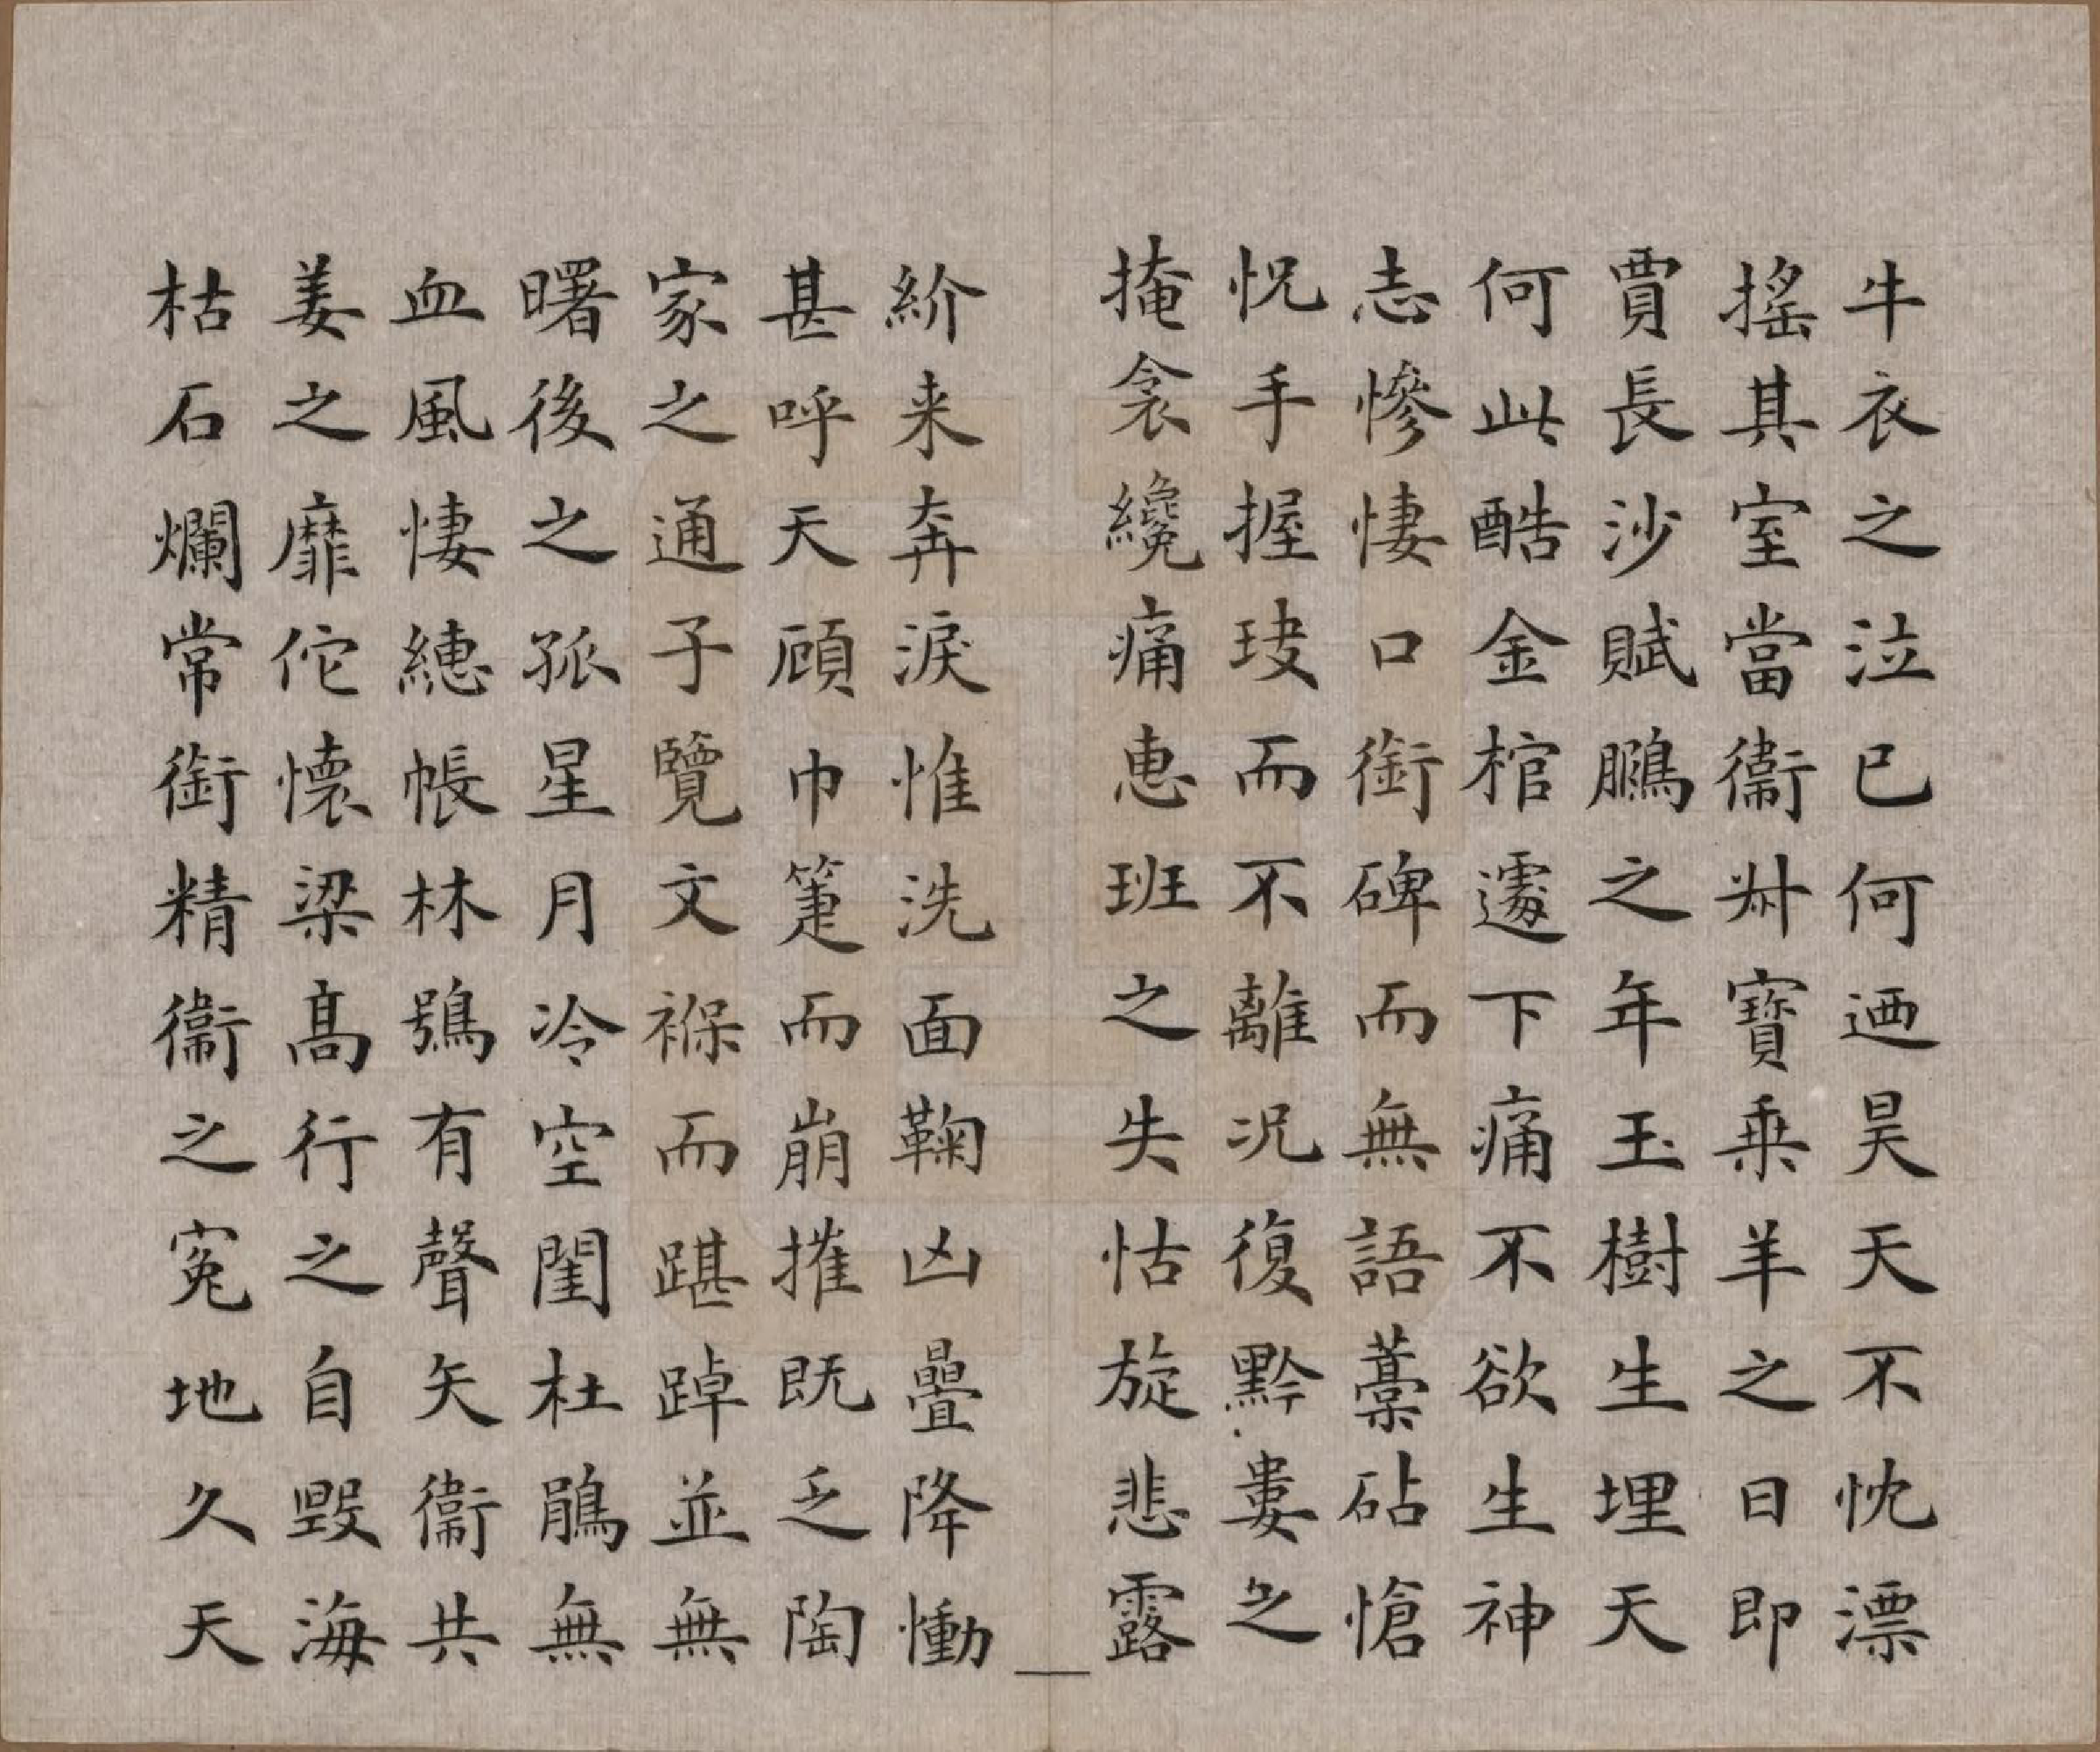 牛衣之泣已何迺昊天不忱漂
搖其室當衞舛寶乗羊之日即
賈長沙賦鵩之年玉樹生埋天
何此酷金棺遽下痛不欲生神
志慘悽口銜碑而無語藁砧愴
怳手握玦而不離况復黔婁之
掩衾纔痛惠班之失怙旋悲露
紒来奔淚惟洗面鞠凶曡降慟
甚呼天頋巾箑而崩摧既乏陶
家之通子覽文褓而踸踔並無
曙後之孤星月冷空閨杜鵑無
血風悽繐帳林鴞有聲矢衞共
姜之靡佗懷梁高行之自毀海
枯石爛常銜精衞之寃地久天